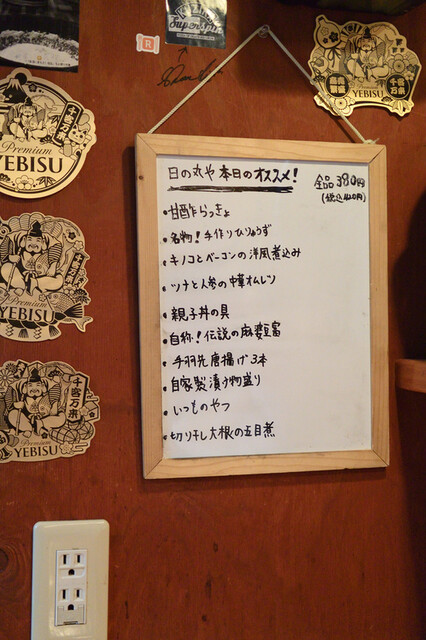 Super
R
千客万来
Premium
YEBISU
YEBISU
千客万来
日の丸や 本日のオススメ!
全品 380円
(税込410円)
・甘酢らっきょ
・名物!手作りひりゅうず
・キノコとベーコンの洋風煮込み
・ツナと人参の中華オムレツ
・親子丼の具
・自称!伝説の麻婆豆腐
・手羽先唐揚げ3本
・自家製漬け物盛り
・いつものやつ
・切り干し大根の五目煮
Premium
YEBISU
千客万来
Premium
YEBISU